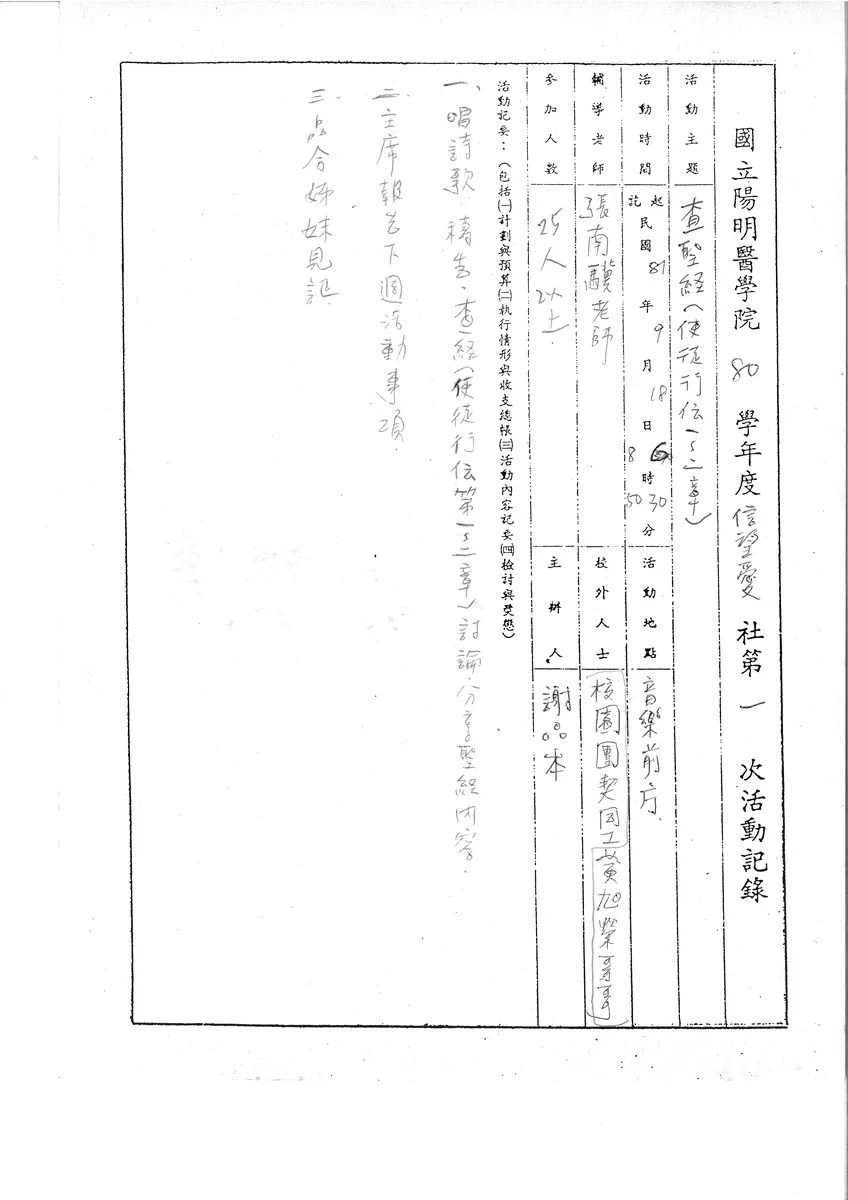 國立陽明醫學院 80 學年度信望愛社第一次活動記錄
活動主題 查聖経(使徒行伝1~二章)
活動時間 起訖民國81年9月18日 6時30分 8 50
活動地點 音樂前庁
輔導老師 張南驥老師
校外人士 校園團契同工黃旭榮哥哥
參加人數 25人以上.
主辦人 謝品本
活動記要:(包括㈠計劃與預算㈡執行情形與收支總帳㈢活動內容記要㈣檢討與獎懲)
一、唱詩歌.禱告.查経(使徒行伝第1~二章)討論.分享聖経內容.
二.主席報告下週活動事項.
三.品合姊妹見証.